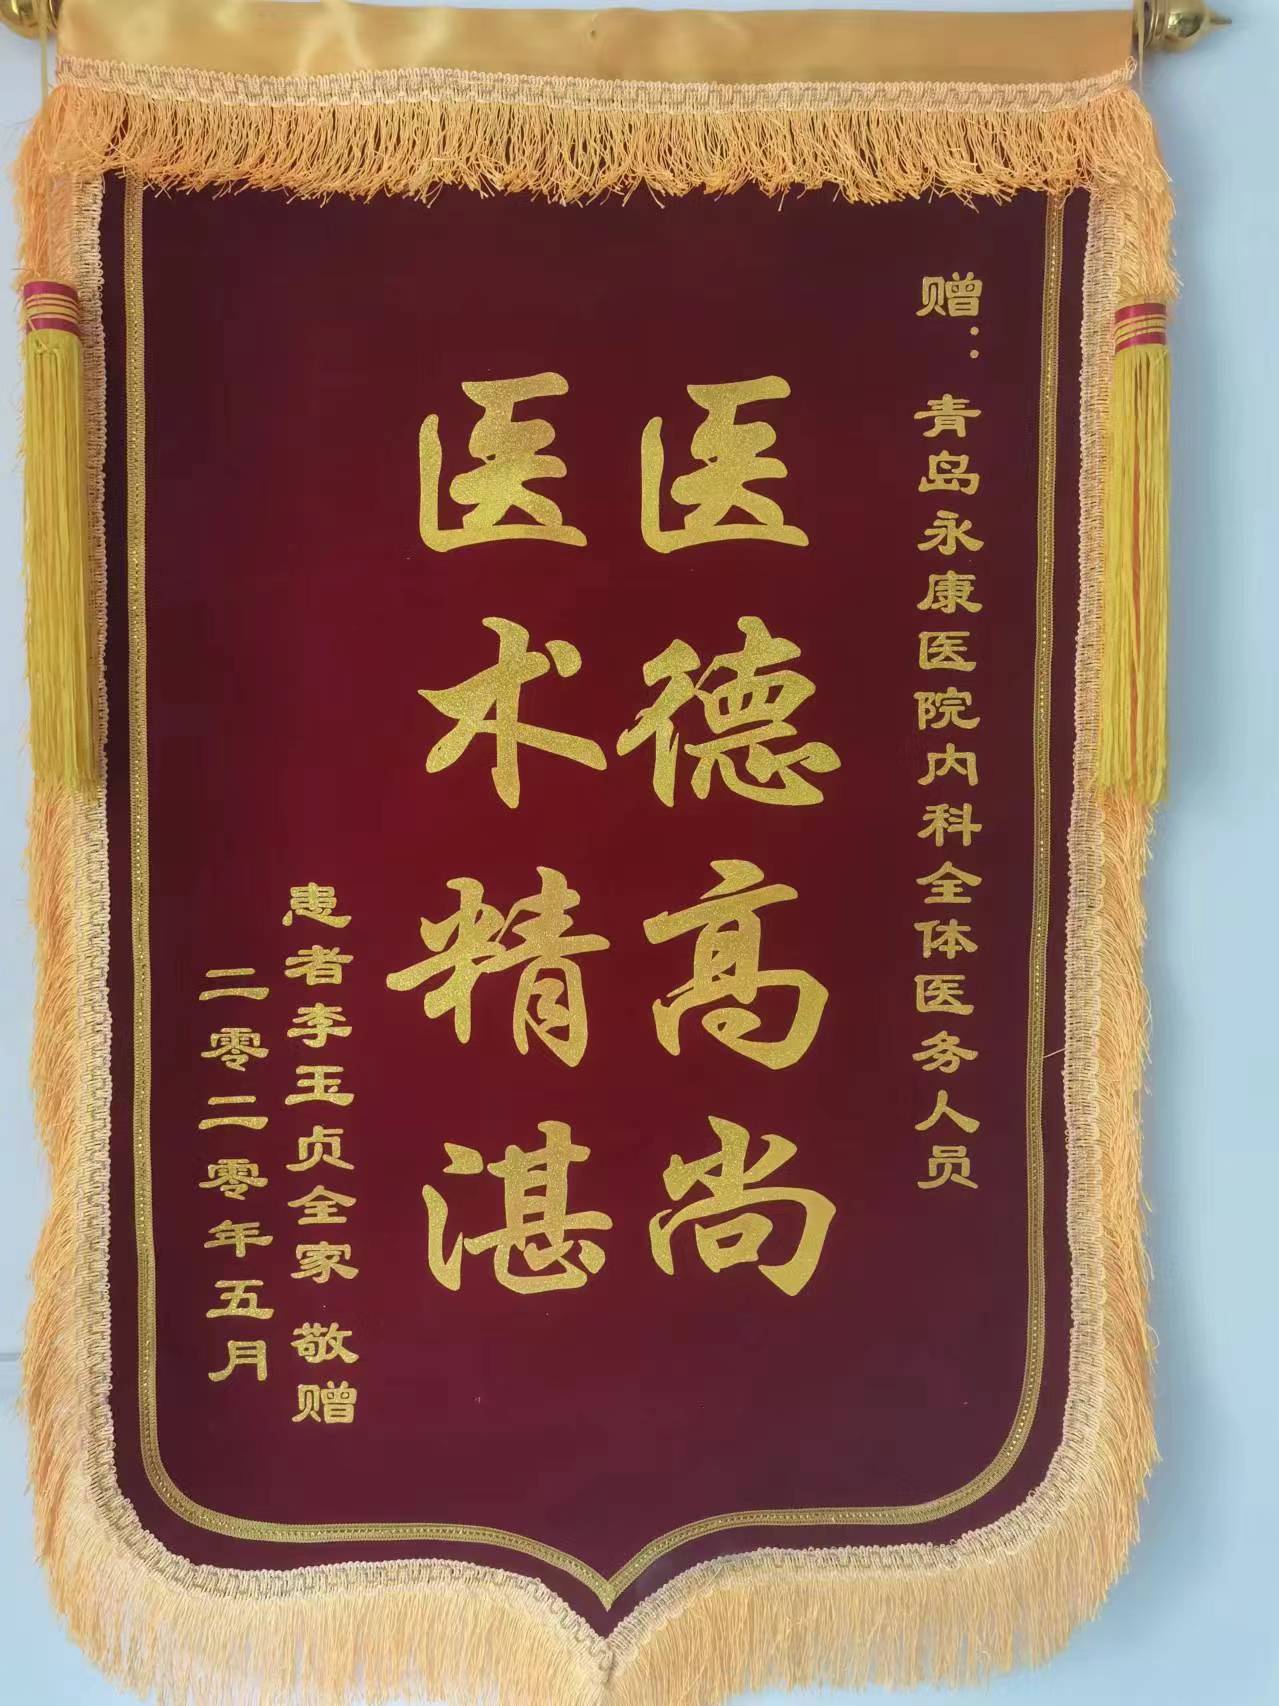 赠：青岛永康医院内科全体医务人员
医德高尚
医术精湛
患者李玉贞全家 敬赠
二零二零年五月